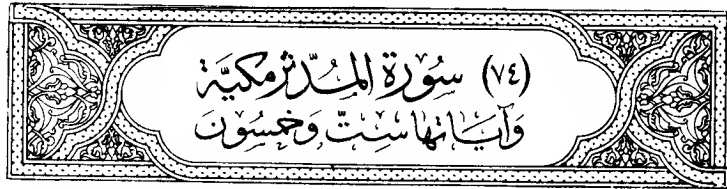 (٧٤) سُورَة المدّثر مكيّة
وَآيَاتها سِتّ وَخمسُون